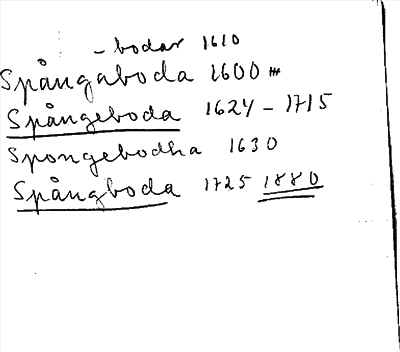 - bodar 1610
Spångaboda 1600 m
Spångeboda 1624 - 1715
Spongebodha 1630
Spångboda 1725 1880